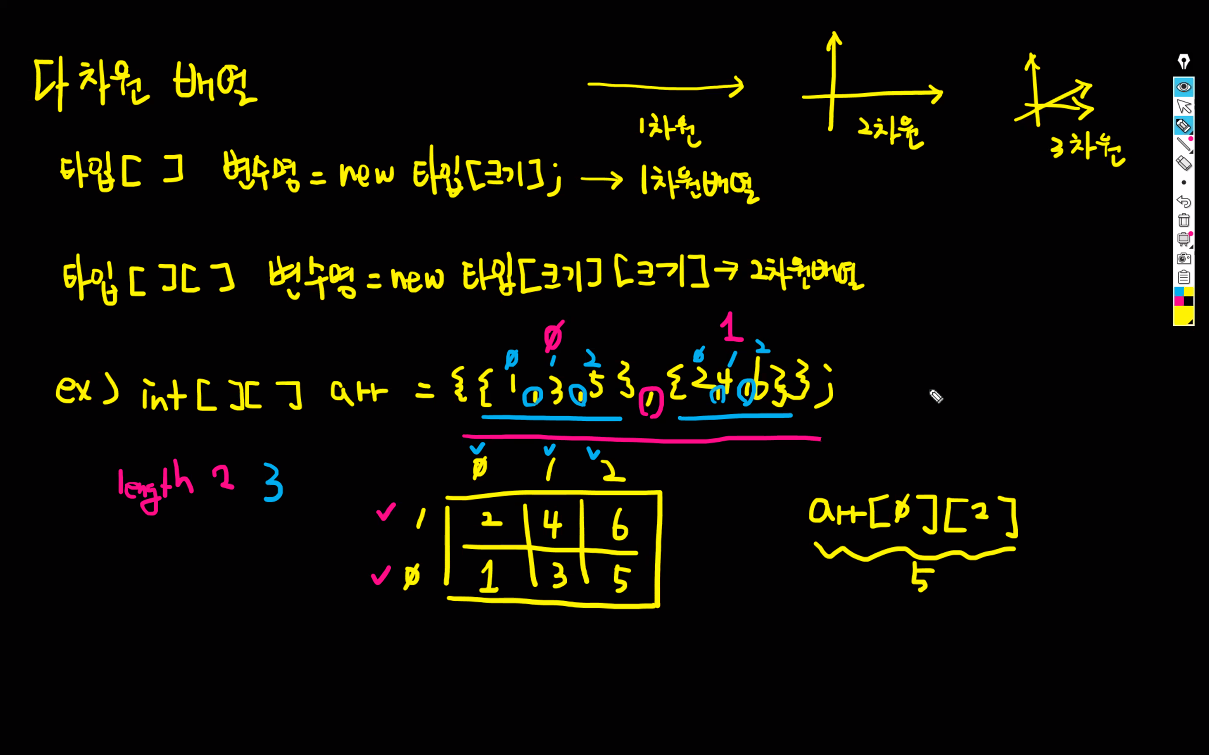 다차원 배열
1차원
2차원
3차원
타입[ ] 변수명 = new 타입[크기]; → 1차원배열
타입[ ][ ] 변수명 = new 타입[크기][크기] → 2차원배열
0 1
0 1 2 0 1 2
ex) int[ ][ ] arr = {{1,3,5},{2,4,6}};
length 2 3
0 1 2
1 2 4 6
0 1 3 5
arr[0][2]
5